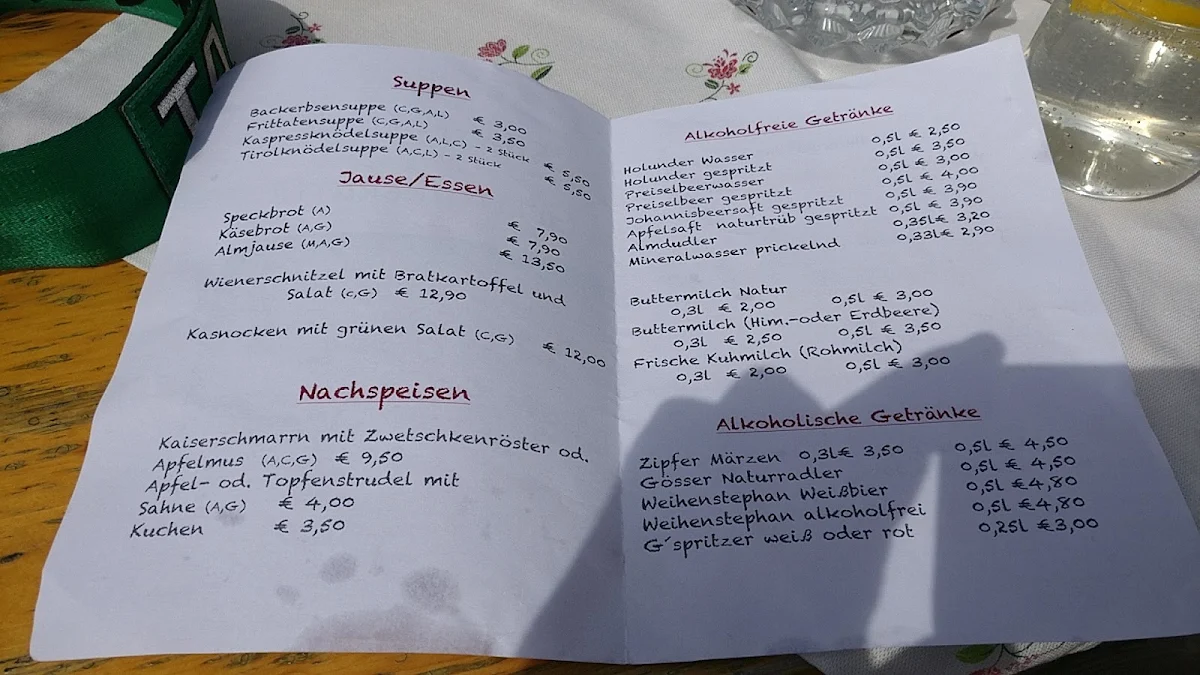 Suppen
Backerbsensuppe (C,G,A,L) € 3,00
Frittatensuppe (C,G,A,L) € 3,50
Kaspressknödelsuppe (A,L,C) - 2 Stück € 5,50
Tirolknödelsuppe (A,C,L) - 2 Stück € 5,50
Jause/Essen
Speckbrot (A) € 7,90
Käsebrot (A,G) € 7,90
Almjause (M,A,G) € 13,50
Wienerschnitzel mit Bratkartoffel und
Salat (C,G) € 12,90
Kasnocken mit grünen Salat (C,G) € 12,00
Nachspeisen
Kaiserschmarrn mit Zwetschkenröster od.
Apfelmus (A,C,G) € 9,50
Apfel- od. Topfenstrudel mit
Sahne (A,G) € 4,00
Kuchen € 3,50
Alkoholfreie Getränke
Holunder Wasser 0,5l € 2,50
Holunder gespritzt 0,5l € 3,50
Preiselbeerwasser 0,5l € 3,00
Preiselbeer gespritzt 0,5l € 4,00
Johannisbeersaft gespritzt 0,5l € 3,90
Apfelsaft naturtrüb gespritzt 0,5l € 3,90
Almdudler 0,35l € 3,20
Mineralwasser prickelnd 0,33l € 2,90
Buttermilch Natur
0,3l € 2,00 0,5l € 3,00
Buttermilch (Him.-oder Erdbeere)
0,3l € 2,50 0,5l € 3,50
Frische Kuhmilch (Rohmilch)
0,3l € 2,00 0,5l € 3,00
Alkoholische Getränke
Zipfer Märzen 0,3l € 3,50 0,5l € 4,50
Gösser Naturradler 0,5l € 4,50
Weihenstephan Weißbier 0,5l € 4,80
Weihenstephan alkoholfrei 0,5l € 4,80
G´spritzer weiß oder rot 0,25l € 3,00